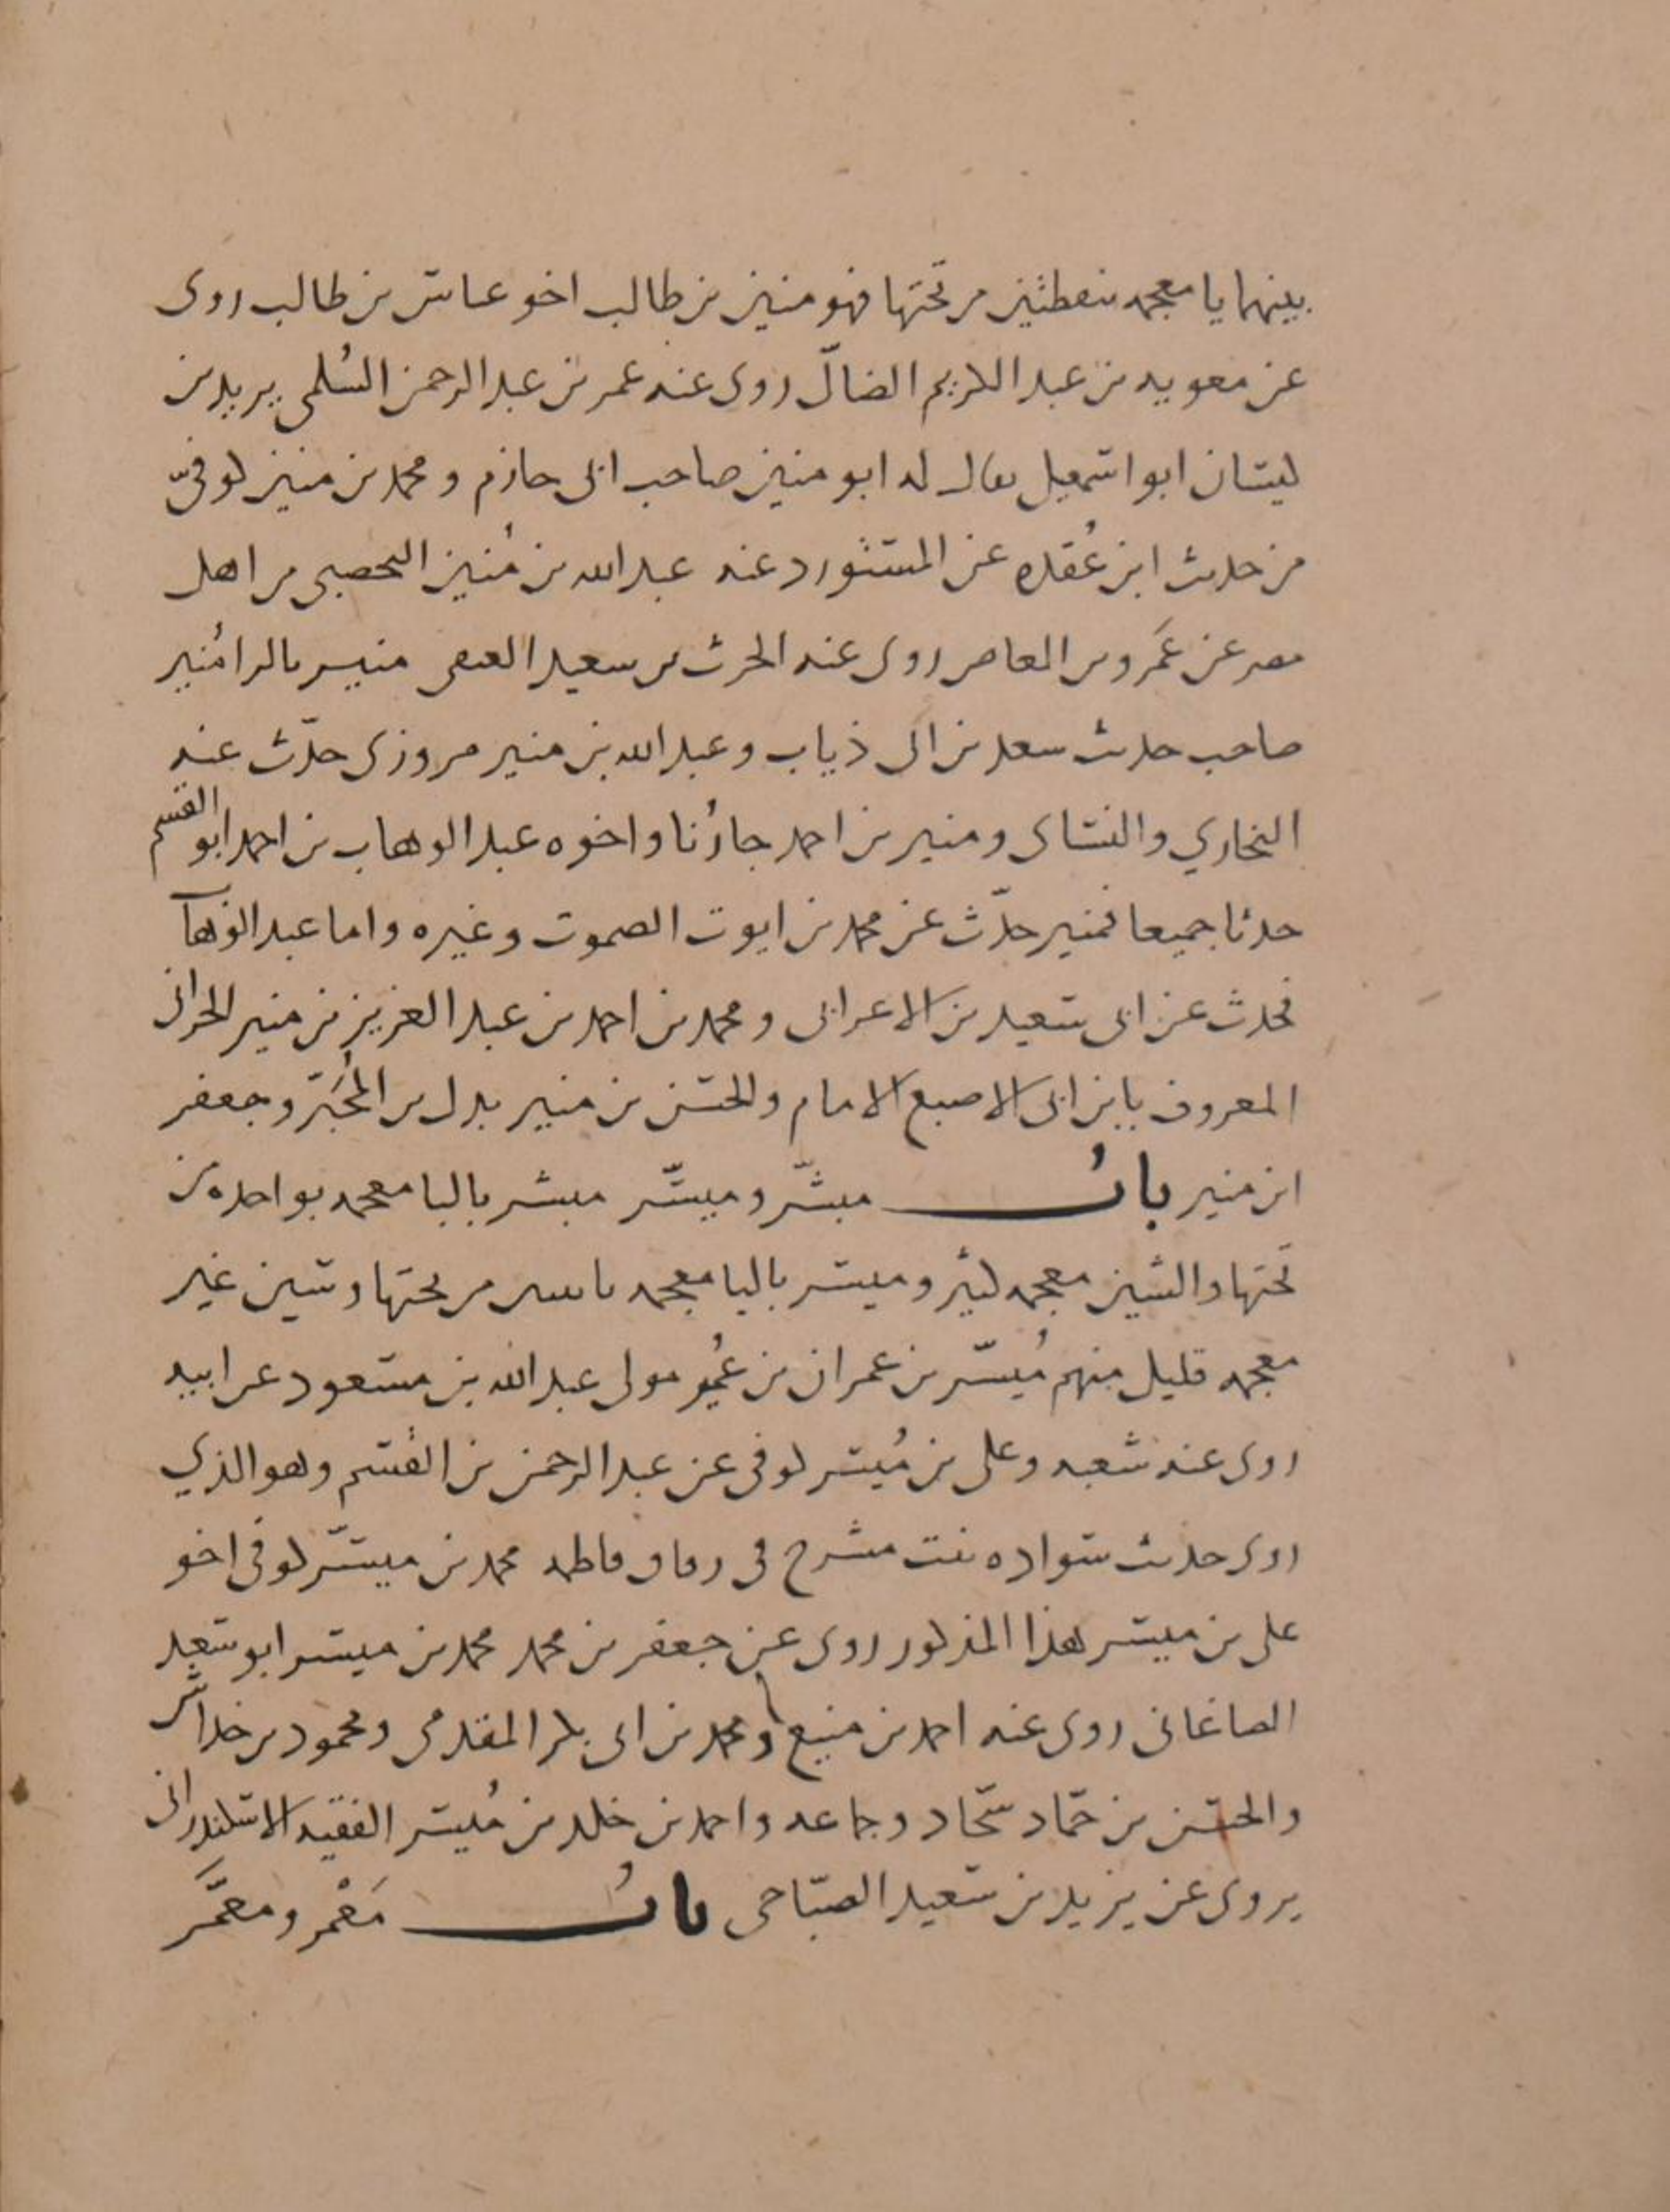 بينهما يا معجمه بنقطتين من تحتها فهو منين بن طالب اخو عباس بن طالب روى
عن معويه بن عبد الكريم الضالّ روى عنه عمر بن عبد الرحمن السُلمي يزيد بن
كيسان ابو اسمعيل يقال له ابو منين صاحب ابى حازم ومحمد بن منين كوفىّ
من حديث ابن عُقده عن المستورد عنه عبد الله بن مُنين اليحصبى من اهل
مصر عن عَمرو بن العاص روى عنه الحرث بن سعيد العتقى منير بالرا مُنير
صاحب حديث سعد بن ابى ذياب وعبد الله بن منير مروزى حدّث عنه
البخاري والنسائى ومنير بن احمد جارُنا واخوه عبد الوهاب بن احمد ابو القسم
حدثا جميعا فمنير حدّث عن محمد بن ايوب الصموت وغيره واما عبد الوهاب
فحدث عن ابى سعيد بن الاعرابى ومحمد بن احمد بن عبد العزيز بن منير الحرانى
المعروف بابن ابى الاصبع الامام والحسن بن منير بدل بن المُحَبّر وجعفر
ابن منير بابُ مبشّر وميسّر مبشر بالبا معجمه بواحده من
تَحتها والشين معجمه كثير وميسر باليا معجمه باثنين من تحتها وسين غير
معجمه قليل منهم مُيسّر بن عمران بن عُمير مولى عبد الله بن مسعود عن ابيه
روى عنه شعبه وعلى بن مُيسر كوفى عن عبد الرحمن بن القسم وهو الذي
روى حديث سواده بنت مشرح فى زفاف فاطمه محمد بن ميسّر كوفى اخو
على بن ميسر هذا المذكور روى عن جعفر بن محمد محمد بن ميسر ابو سعد
الصاغانى روى عنه احمد بن منيع ومحمد بن ابى بكر المقدمى ومحمود بن خداش
والحسن بن حمّاد سجّاد وجماعه واحمد بن خلد بن مُيسر الفقيه الاسكندرانى
يروى عن يزيد بن سعيد الصبّاحى بابُ مَعْمر ومعمَّر